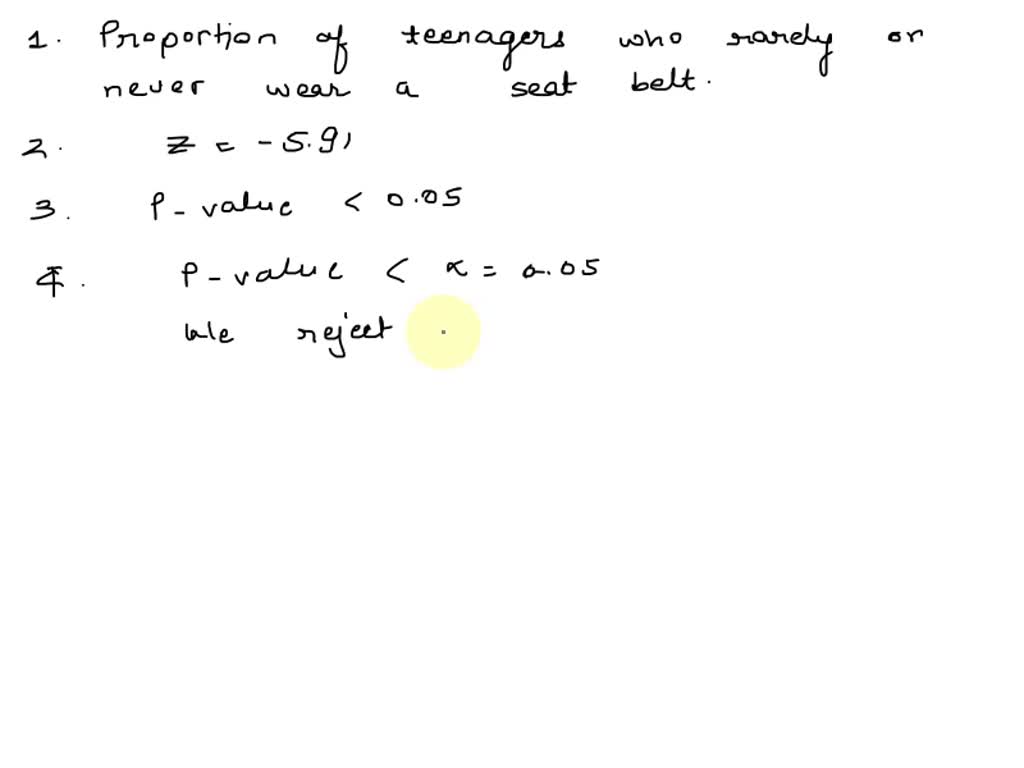 1. Proportion of teenagers who rarely or
never wear a seat belt.
2. Z = -5.91
3. P-value < 0.05
4. P-value < α = 0.05
We reject